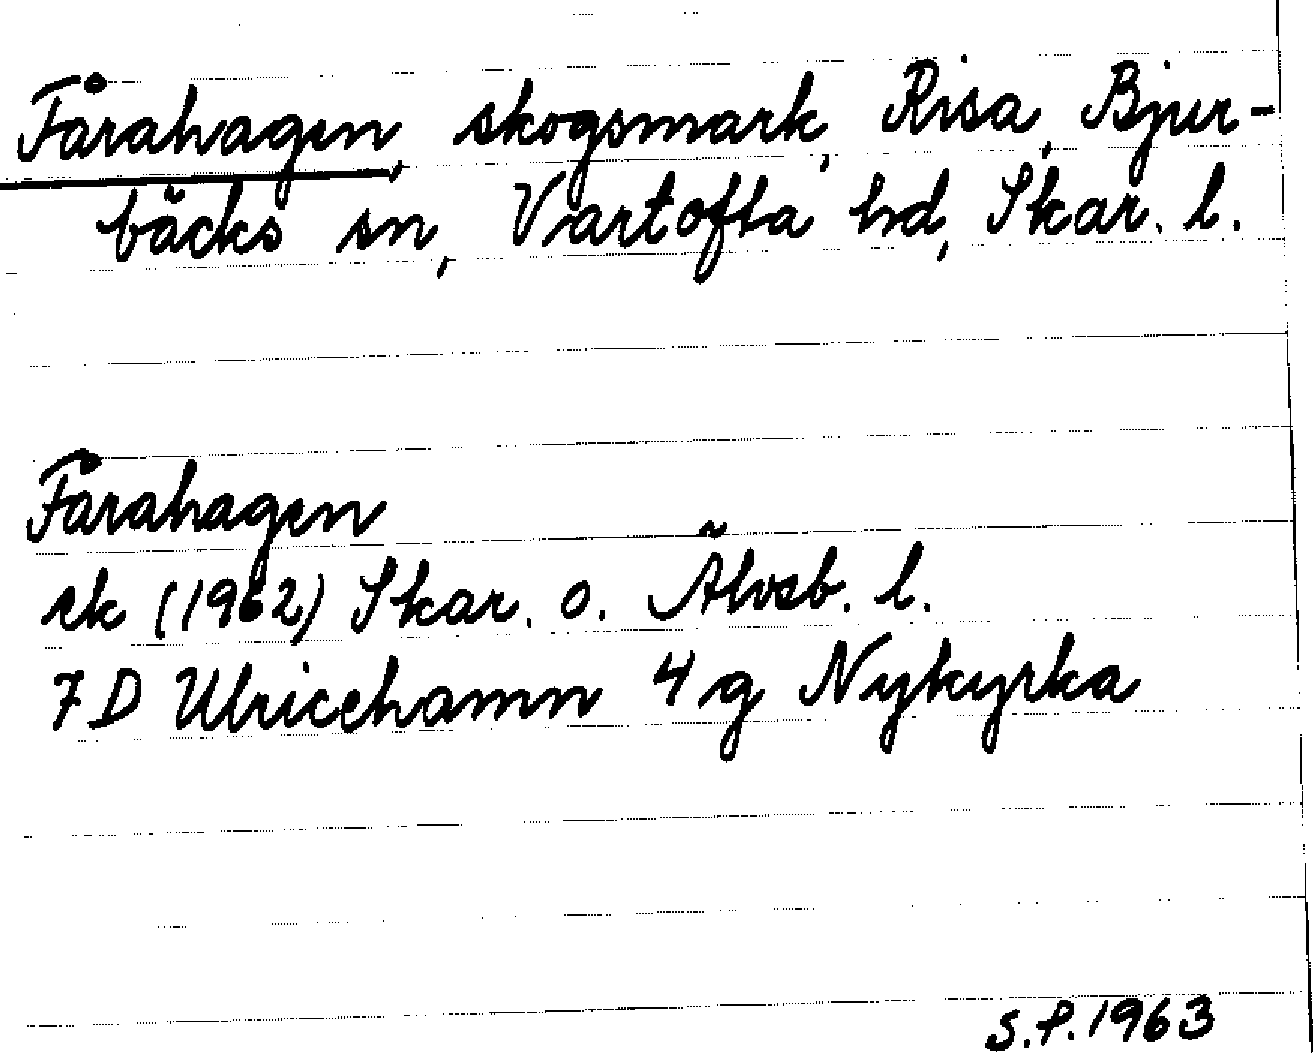 Fårahagen, skogsmark, Risa, Bjur-
bäcks sn, Vartofta hd, Skar. l.
Fårahagen
ek (1962) Skar. o. Älvsb. l.
7 D Ulricehamn 4 g Nykyrka
S.P. 1963